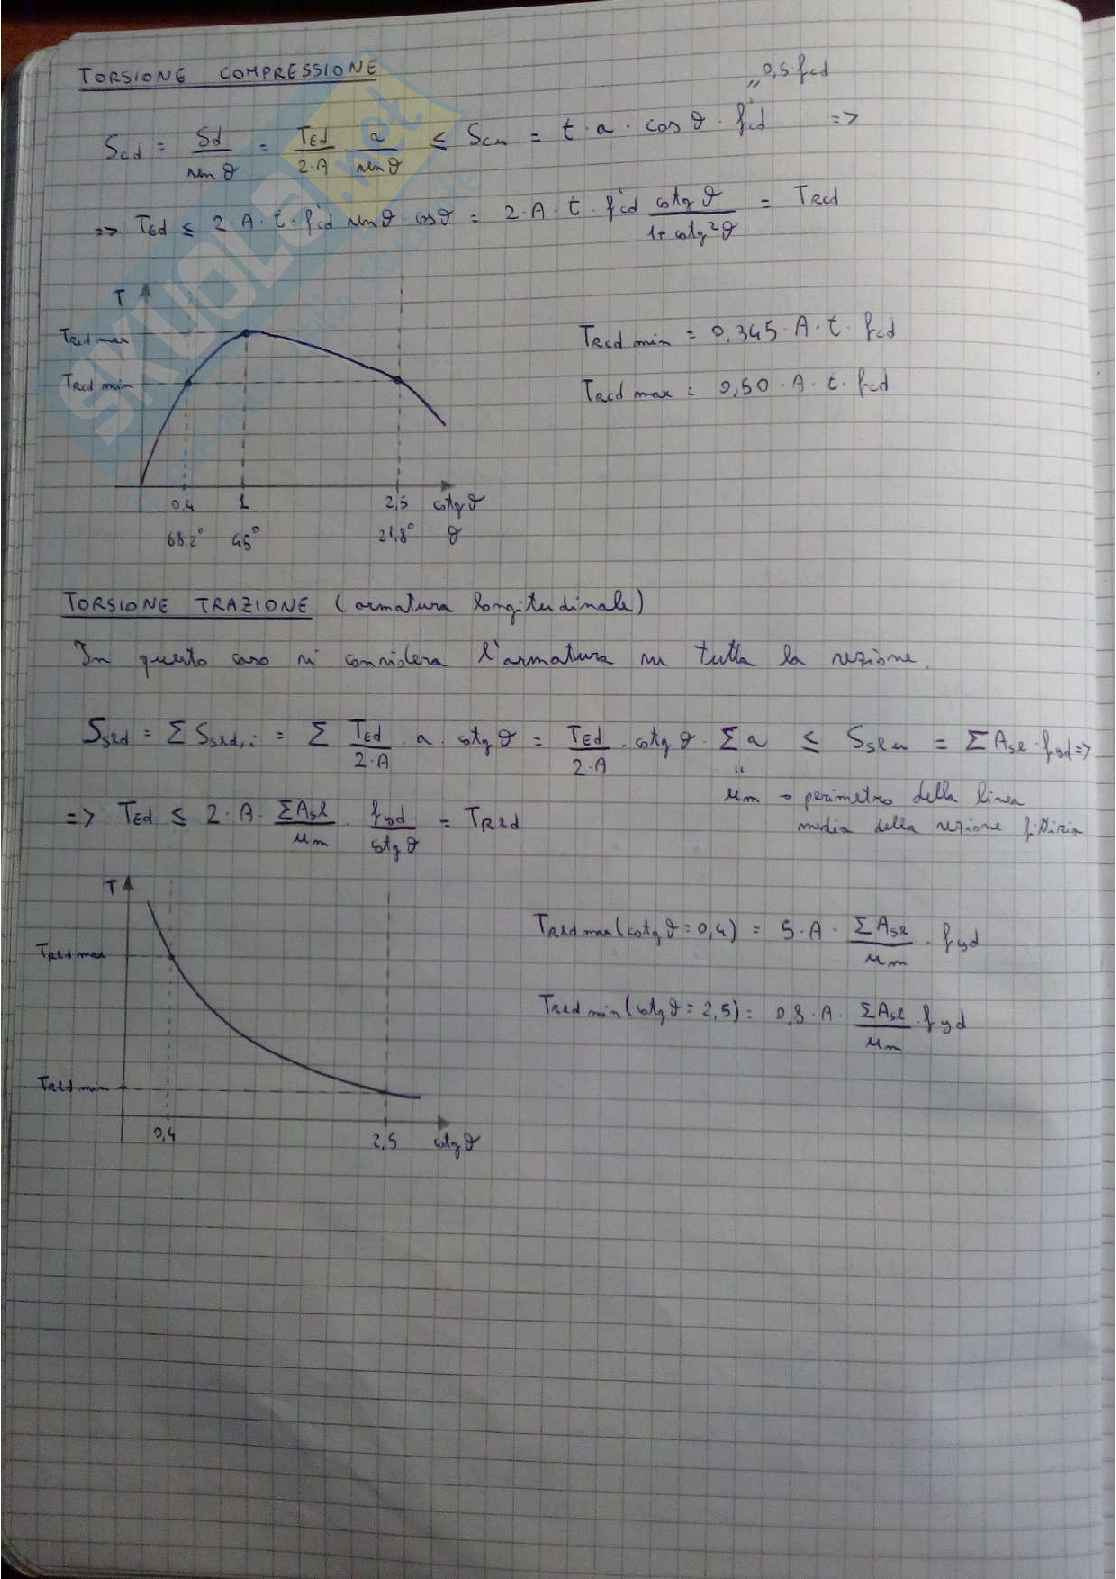 TORSIONE COMPRESSIONE
" 0,5 fcd
Scd = Sd/sen ϑ = TEd/2·A a/sen ϑ ≤ Scu = t · a · cos ϑ · f'cd =>
=> TEd ≤ 2 · A · t · f'cd sen ϑ cos ϑ = 2 · A · t · f'cd cotg ϑ/1+cotg²ϑ = TRcd
T
TRcd max
TRcd min
TRcd min = 0,345 · A · t · fcd
TRcd max = 0,50 · A · t · fcd
0,4 1 2,5 cotg ϑ
68,2° 45° 21,8° ϑ
TORSIONE TRAZIONE (armatura longitudinale)
In questo caso si considera l'armatura su tutta la sezione.
Ssld = Σ Ssld,i = Σ TEd/2·A · a · cotg ϑ = TEd/2·A · cotg ϑ · Σ a ≤ Sslu = Σ Asl · fyd =>
" um → perimetro della linea
media della sezione fittizia
=> TEd ≤ 2 · A · ΣAsl/um · fyd/cotg ϑ = TRld
T
TRld max
TRld min
TRld max (cotg ϑ = 0,4) = 5 · A · ΣAsl/um · fyd
TRld min (cotg ϑ = 2,5) = 0,8 · A · ΣAsl/um · fyd
0,4 2,5 cotg ϑ
SKUOLA.net